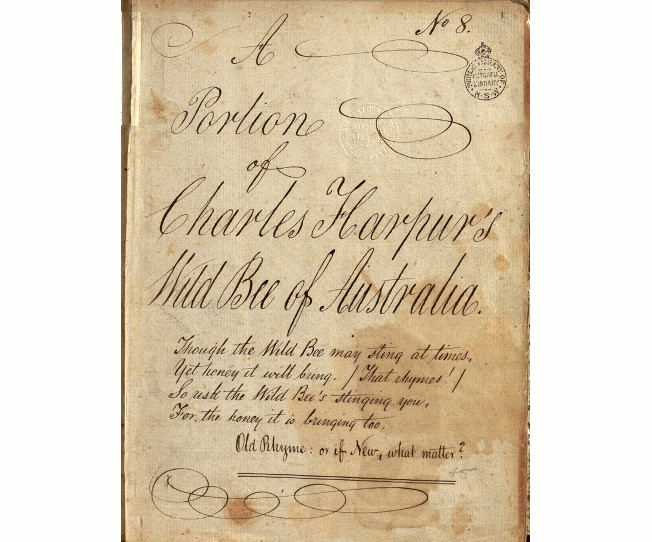 No 8.
A
Portion
of
Charles Harpur's
Wild Bee of Australia.
Though the Wild Bee may sting at times,
Yet honey it will bring. / That rhymes! /
So risk the Wild Bee's stinging you,
For the honey it is bringing too.
Old Rhyme: or if New, what matter?
PUBLIC LIBRARY OF
MITCHELL
LIBRARY
N.S.W